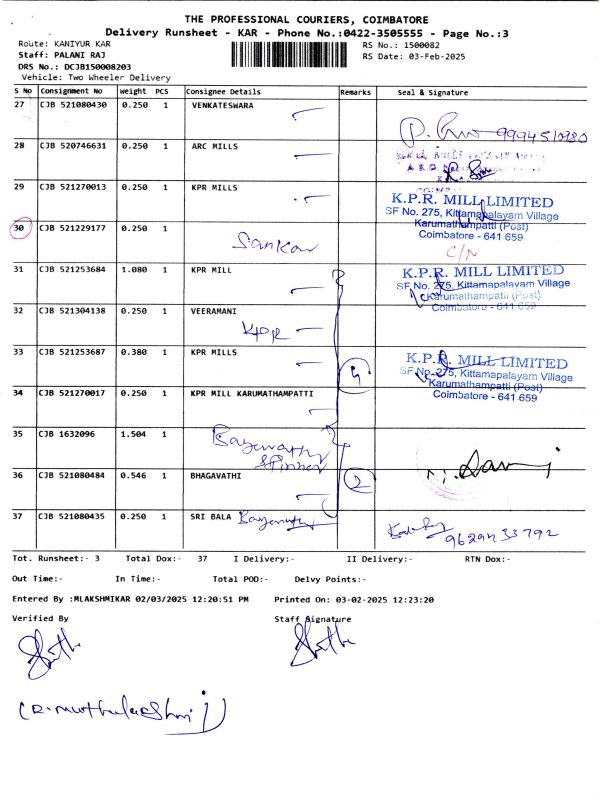 THE PROFESSIONAL COURIERS, COIMBATORE
Delivery Runsheet - KAR - Phone No.:0422-3505555 - Page No.:3
Route: KANIYUR KAR
RS No.: 1500082
Staff: PALANI RAJ
RS Date: 03-Feb-2025
DRS No.: DCJB150008203
Vehicle: Two Wheeler Delivery
S No Consignment No Weight PCS Consignee Details Remarks Seal & Signature
27 CJB 521080430 0.250 1 VENKATESWARA
28 CJB 520746631 0.250 1 ARC MILLS
29 CJB 521270013 0.250 1 KPR MILLS
K.P.R. MILL LIMITED
SF No. 275, Kittamapalayam Village
Karumathampatti (Post)
Coimbatore - 641 659
30 CJB 521229177 0.250 1
Sankar
C/N
31 CJB 521253684 1.080 1 KPR MILL
K.P.R. MILL LIMITED
SF No. 275, Kittamapalayam Village
Karumathampatti (Post)
Coimbatore - 641 659
32 CJB 521304138 0.250 1 VEERAMANI
KPR
33 CJB 521253687 0.380 1 KPR MILLS
K.P.R. MILL LIMITED
SF No. 275, Kittamapalayam Village
Karumathampatti (Post)
Coimbatore - 641 659
34 CJB 521270017 0.250 1 KPR MILL KARUMATHAMPATTI
35 CJB 1632096 1.504 1
36 CJB 521080484 0.546 1 BHAGAVATHI
2
37 CJB 521080435 0.250 1 SRI BALA
Tot. Runsheet:- 3 Total Dox:- 37 I Delivery:- II Delivery:- RTN Dox:-
Out Time:- In Time:- Total POD:- Delvy Points:-
Entered By :MLAKSHMIKAR 02/03/2025 12:20:51 PM Printed On: 03-02-2025 12:23:20
Verified By
Staff Signature